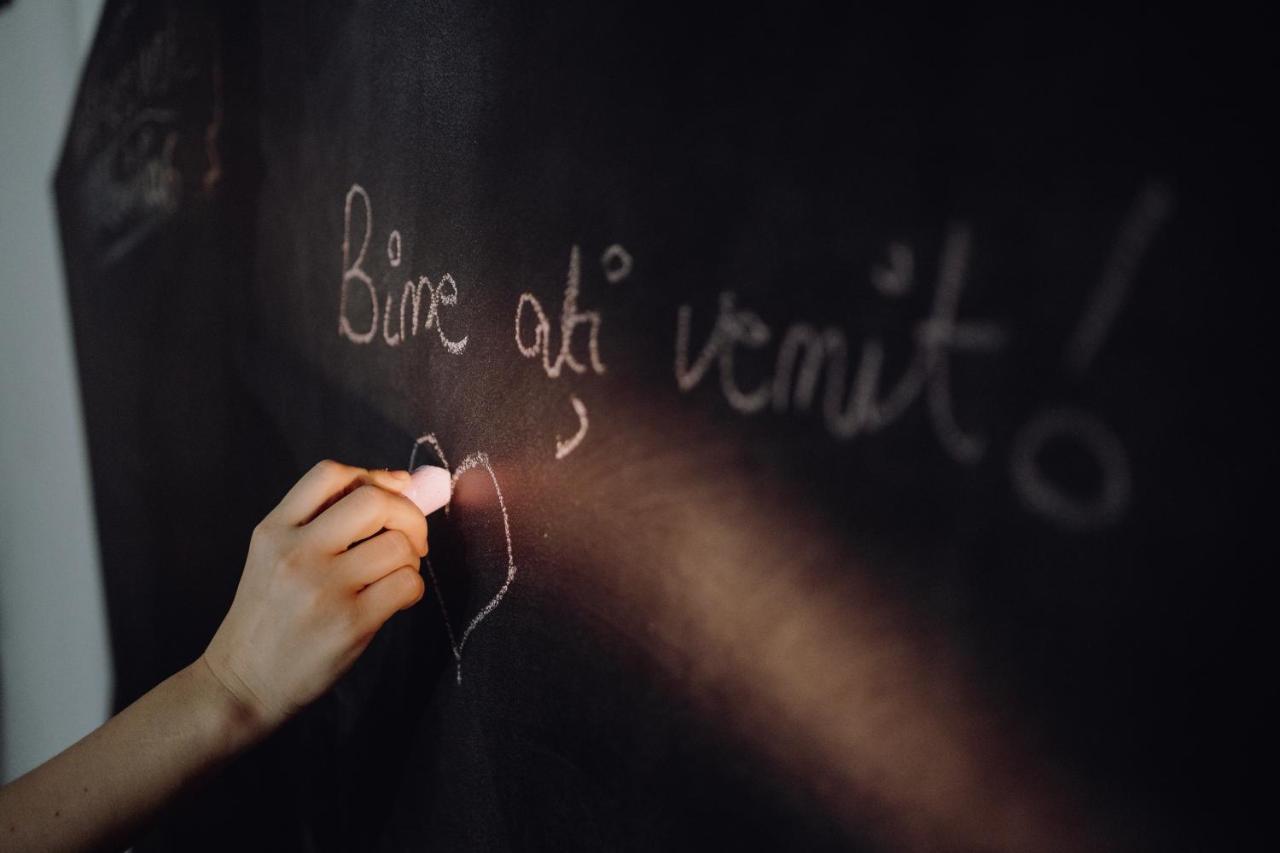 Bine ați venit!